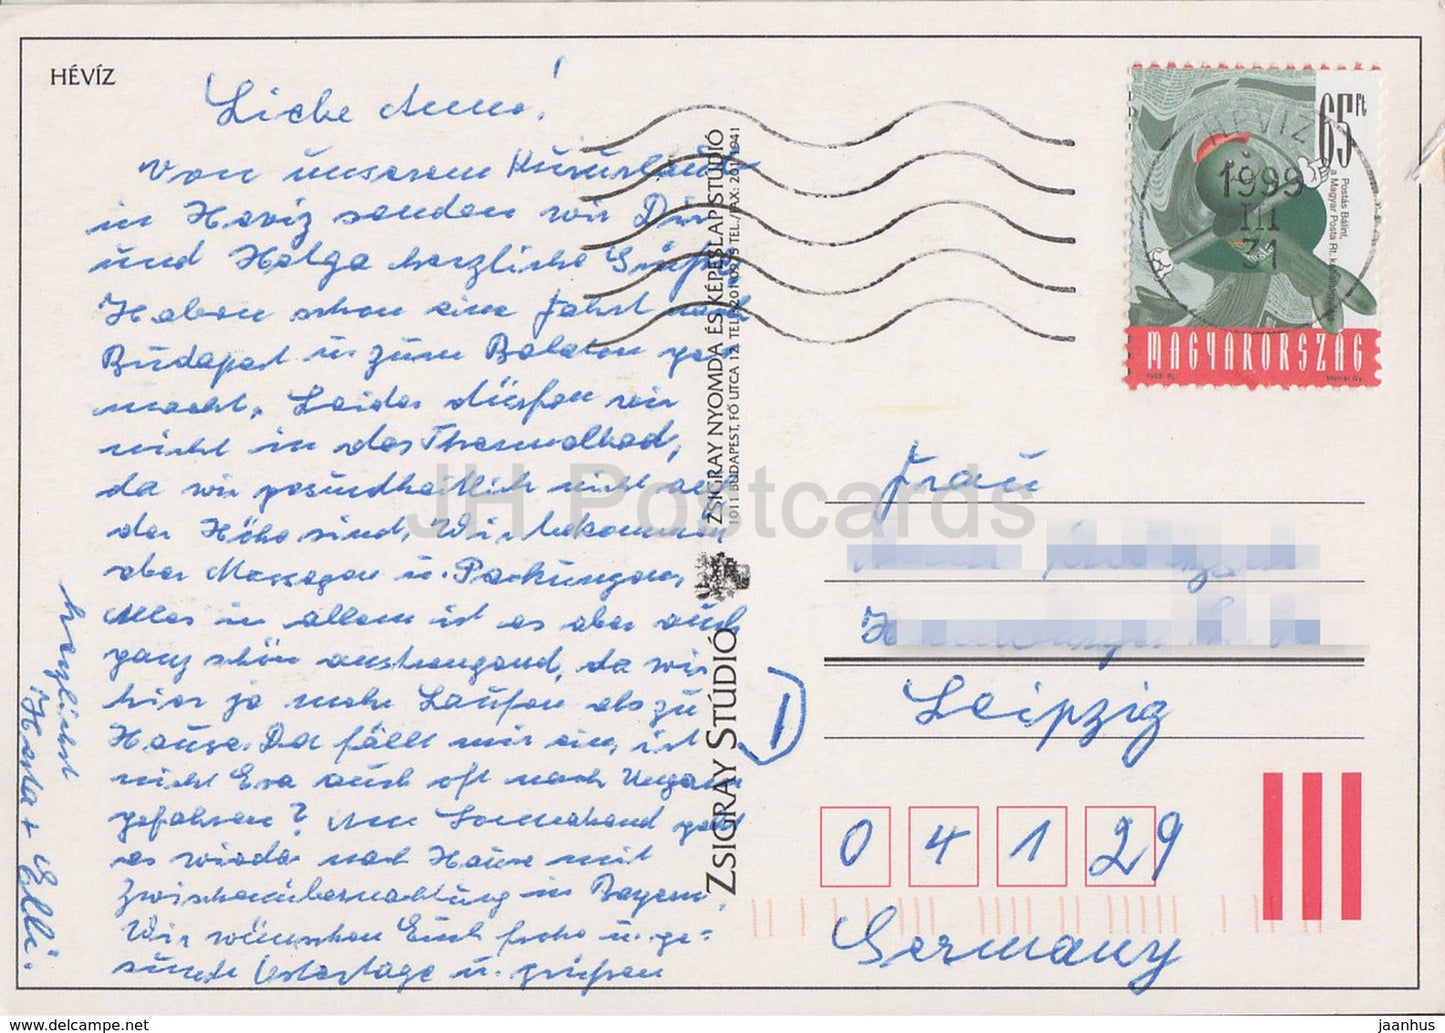 HÉVÍZ
Liebe Anna!
Von unserem Kururlaub
in Heviz senden wir Dir
und Helga herzliche Grüße
Haben schon eine Fahrt nach
Budapest u. zum Balaton ge-
macht. Leider dürfen wir
nicht in das Thermalbad,
da wir gesundheitlich nicht auf
der Höhe sind. Wir bekommen
aber Massagen u. Packungen.
Alles in allem ist es aber auch
ganz schön anstrengend, da wir
hier ja mehr Laufen als zu
Hause. Da fällt mir ein, ist
nicht Eva auch oft nach Ungarn
gefahren? Am Sonnabend geht
es wieder nach Hause mit
Zwischenübernachtung in Bayern.
Wir wünschen Euch frohe u. ge-
sunde Ostertage u. grüßen
herzlichst
Herta + Elli.
ZSIGRAY STÚDIÓ
ZSIGRAY NYOMDA ÉS KÉPESLAP STÚDIÓ
1011 BUDAPEST, FŐ UTCA 12. TEL.
1
65 Ft
Postás Bálint,
a Magyar Posta Rt.
HÉVÍZ
1999
III
31
MAGYARORSZÁG
Frau
Leipzig
04129
Germany
JH Postcards
jaanhus HipPostcard.com